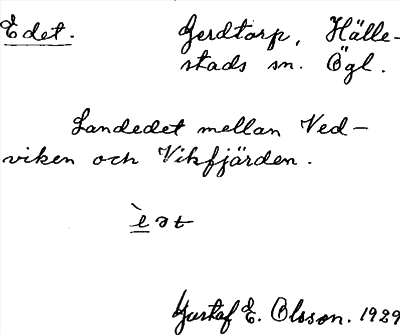 Edet. Gerdtorp, Hälle-
stads sn. Ögl.
Landedet mellan Ved-
viken och Vikfjärden.
èət
Gustaf E. Olsson. 1929